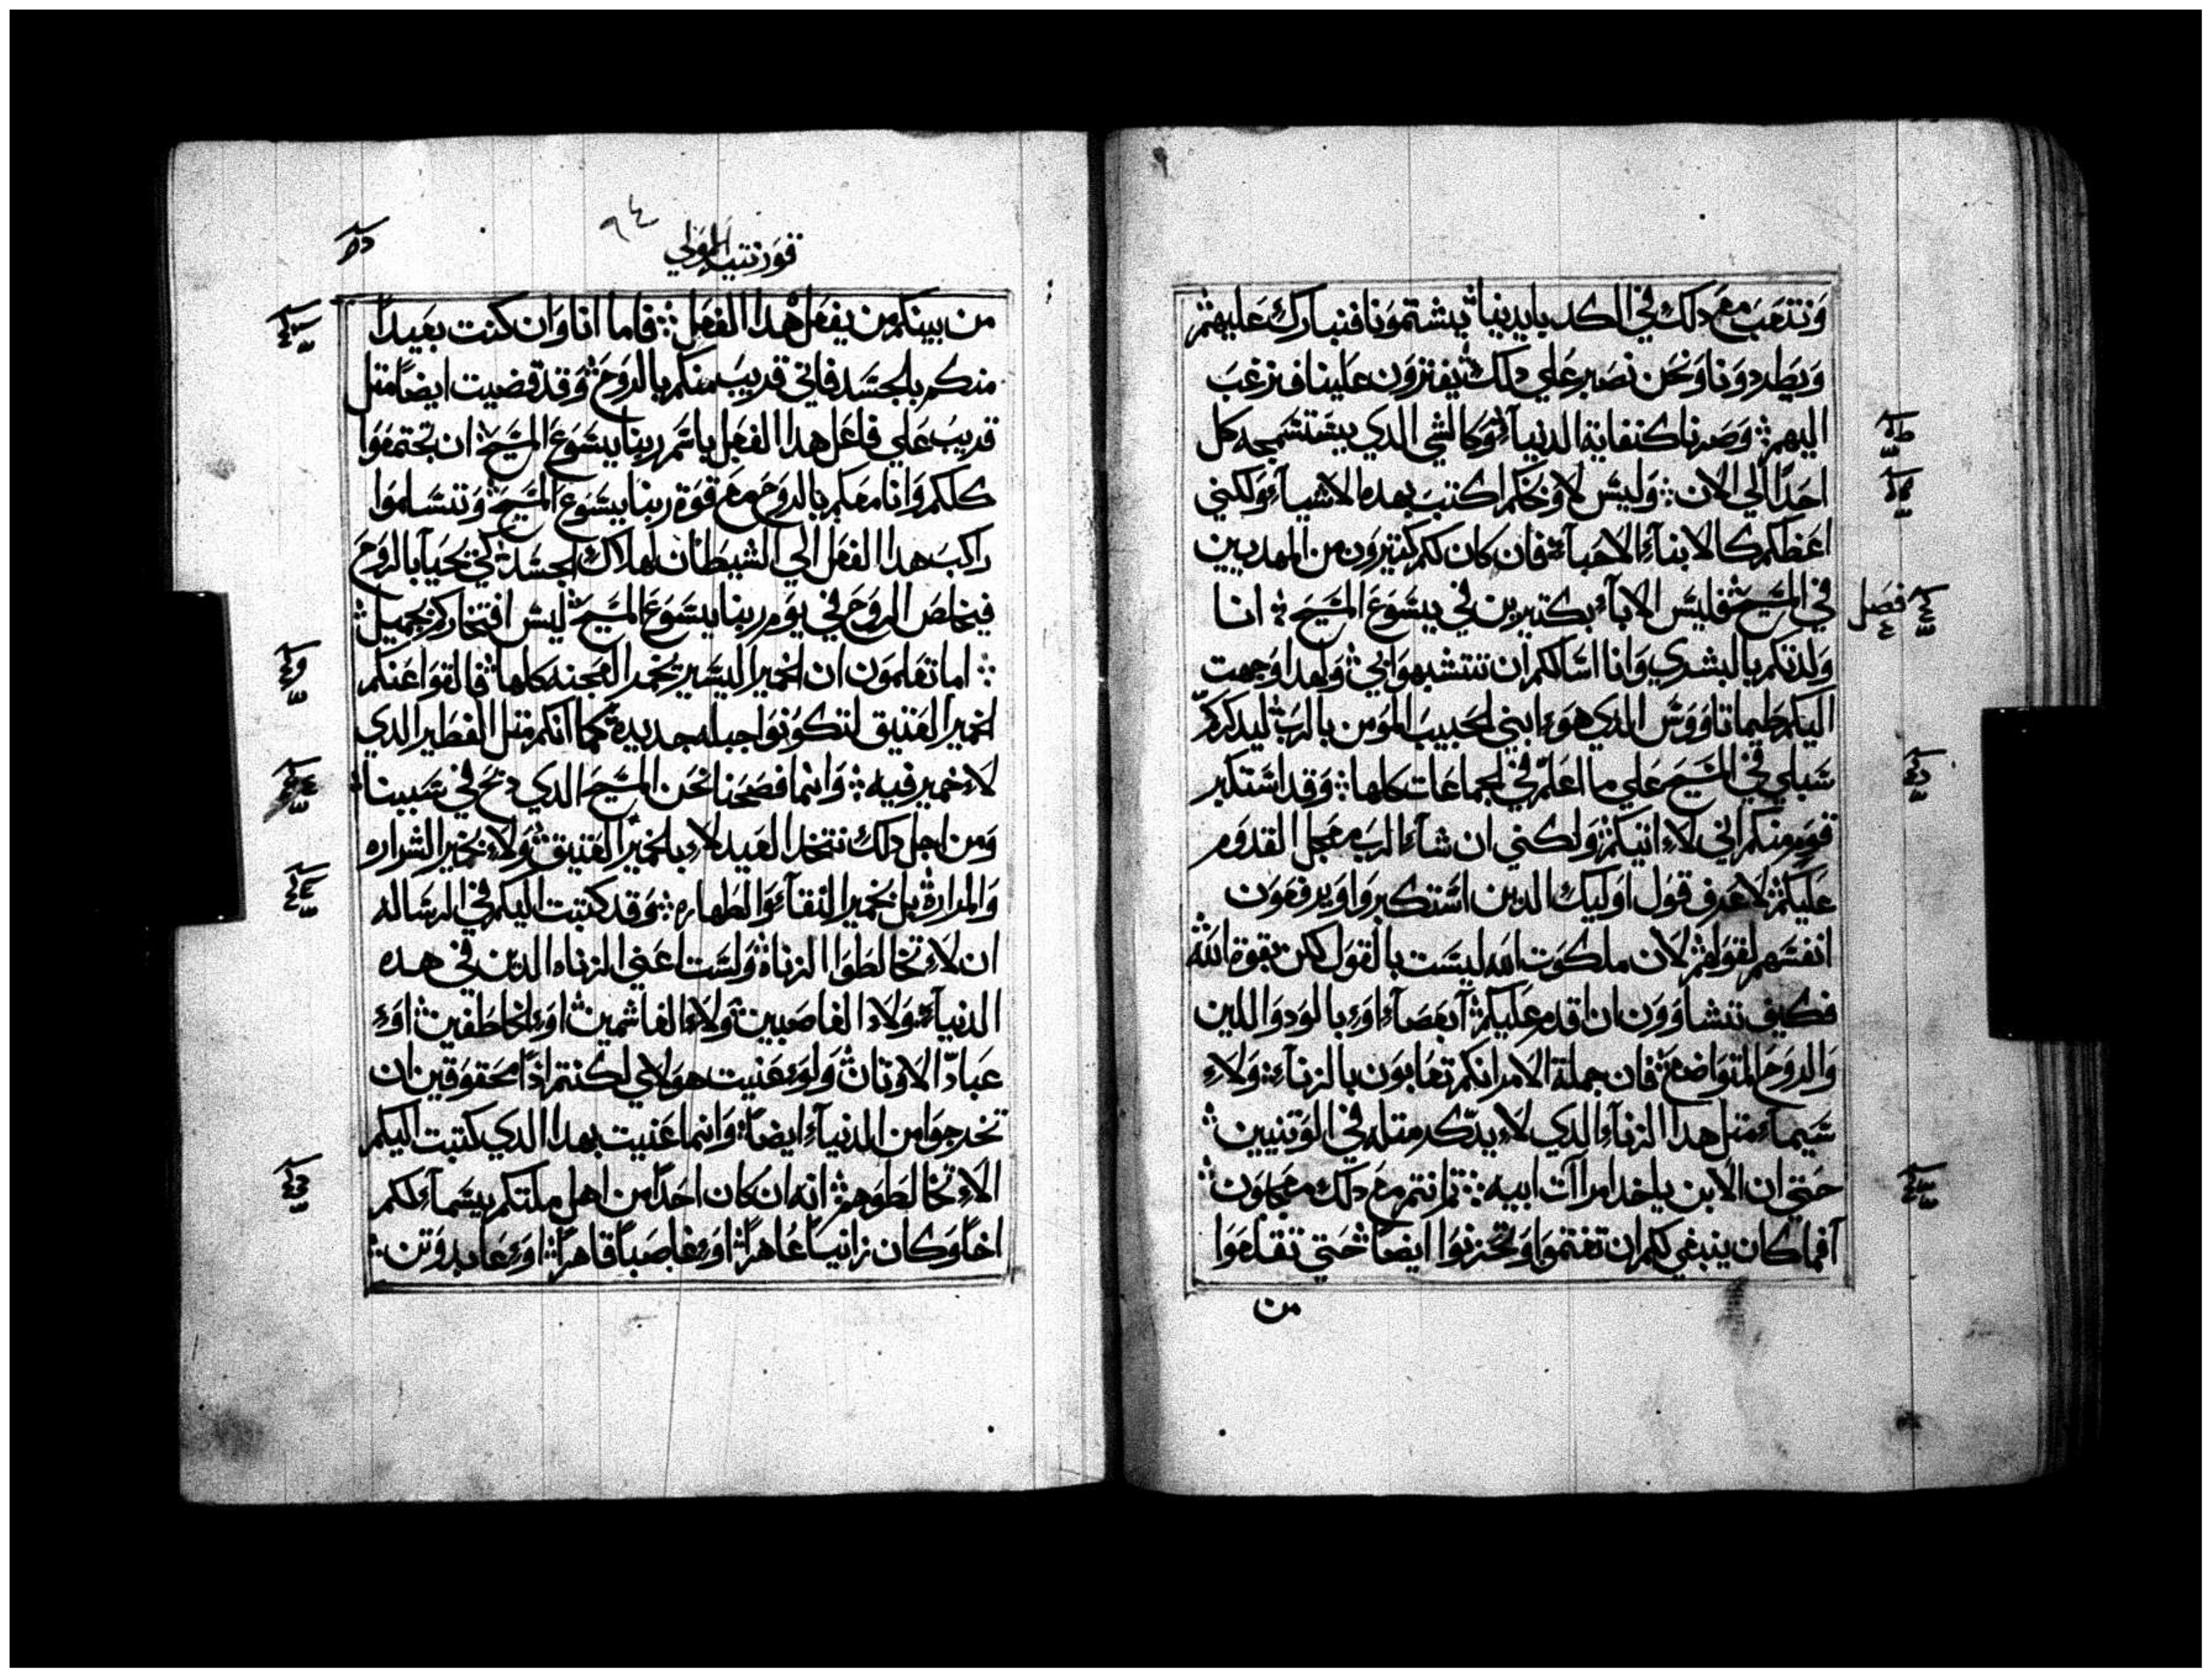 ونتعب مع دلك في الكد بايدينا يشتمونا فنبارك عليهم
ويطردونا ونحن نصبر علي دلك يفترون علينا فنرغب
اليهم وصرنا كنفاية الدنيا وكالشي الدي يستسمجه كل
احدًا الي الان وليس لاوبخكم اكتب بهده الاشياء ولكني
اعظكم كالابناء الاحباء فان كان لكم كتيرون من المهدبين
في المسيح فليس الاباء بكتيرين في يسوع المسيح انا
فصل
ولدتكم بالبشري وانا اسالكم ان تتشبهوا بي ولهدا وجهت
اليكم طيماتاووس الدي هوء ابني الحبيب المومن بالرب ليدكركم
سبلي في المسيح علي ما اعلم في الجماعات كلها وقد استكبر
قوم منكم اني لاء اتيكم ولكني ان شاء الرب معجل القدوم
عليكم لاعرف قول اوليك الدين استكبروا ويرفعون
انفسهم لقولهم لان ملكوت الله ليست بالقول لكن بقوة الله
فكيف تتشاوون ان اقدم عليكم آبعصاء اوء بالود واللين
والروح المتواضع فان جملة الامر انكم تعابون بالزناء ولاء
سيماء متل هدا الزناء الدي لاء يدكر متله في الوتنيين
حتي ان الابن ياخد امراات ابيه تم انتم مع دلك معجبون
آفما كان ينبغي لكم ان تغتموا وتحزنوا ايضاً حتي تقلعوا
من
قورنتيه الاولي
٩٤
من بينكم من يفعل هدا الفعل فاما انا وان كنت بعيداً
منكم بالجسد فاني قريب منكم بالروح وقد قضيت ايضاً متل
قريب علي فاعل هدا الفعل باسم ربنا يسوع المسيح ان تجتمعوا
كلكم وانا معكم بالروح مع قوة ربنا يسوع المسيح وتسلموا
راكب هدا الفعل الي الشيطان لهلاك الجسد كي تحيا بالروح
فيخلص الروح في يوم ربنا يسوع المسيح ليس افتخاركم بجميل
اما تعلمون ان الخمير اليسير يخمر العجنه كلها فالقوا عنكم
الخمير العتيق لتكونوا جبله جديدة كما انكم متل الفطير الدي
لاء خمير فيه وانما فصحنا نحن المسيح الدي دبح في سببنا
ومن اجل دلك نتخد العيد لاء بالخمير العتيق ولاء بخمير الشراره
والمرارة بل بخمير النقاء والطهاره وقد كتبت اليكم في الرساله
ان لاء تخالطوا الزناة ولست اعني الزناه الدين في هده
الدنياء ولاء الغاصبين ولاء الغاشمين اوء الخاطفين اوء
عبادّ الاوتان ولوء عنيت هولاي لكنتم اداً محقوقين ان
تخرجوا من الدنياء ايضاً وانما عنيت بهدا الدي كتبت اليكم
الاء تخالطوهم انه ان كان احداً من اهل ملتكم يسماء لكم
اخاً وكان زانياً عاهراً اوء غاصباً قاهراً اوء عابد وتن